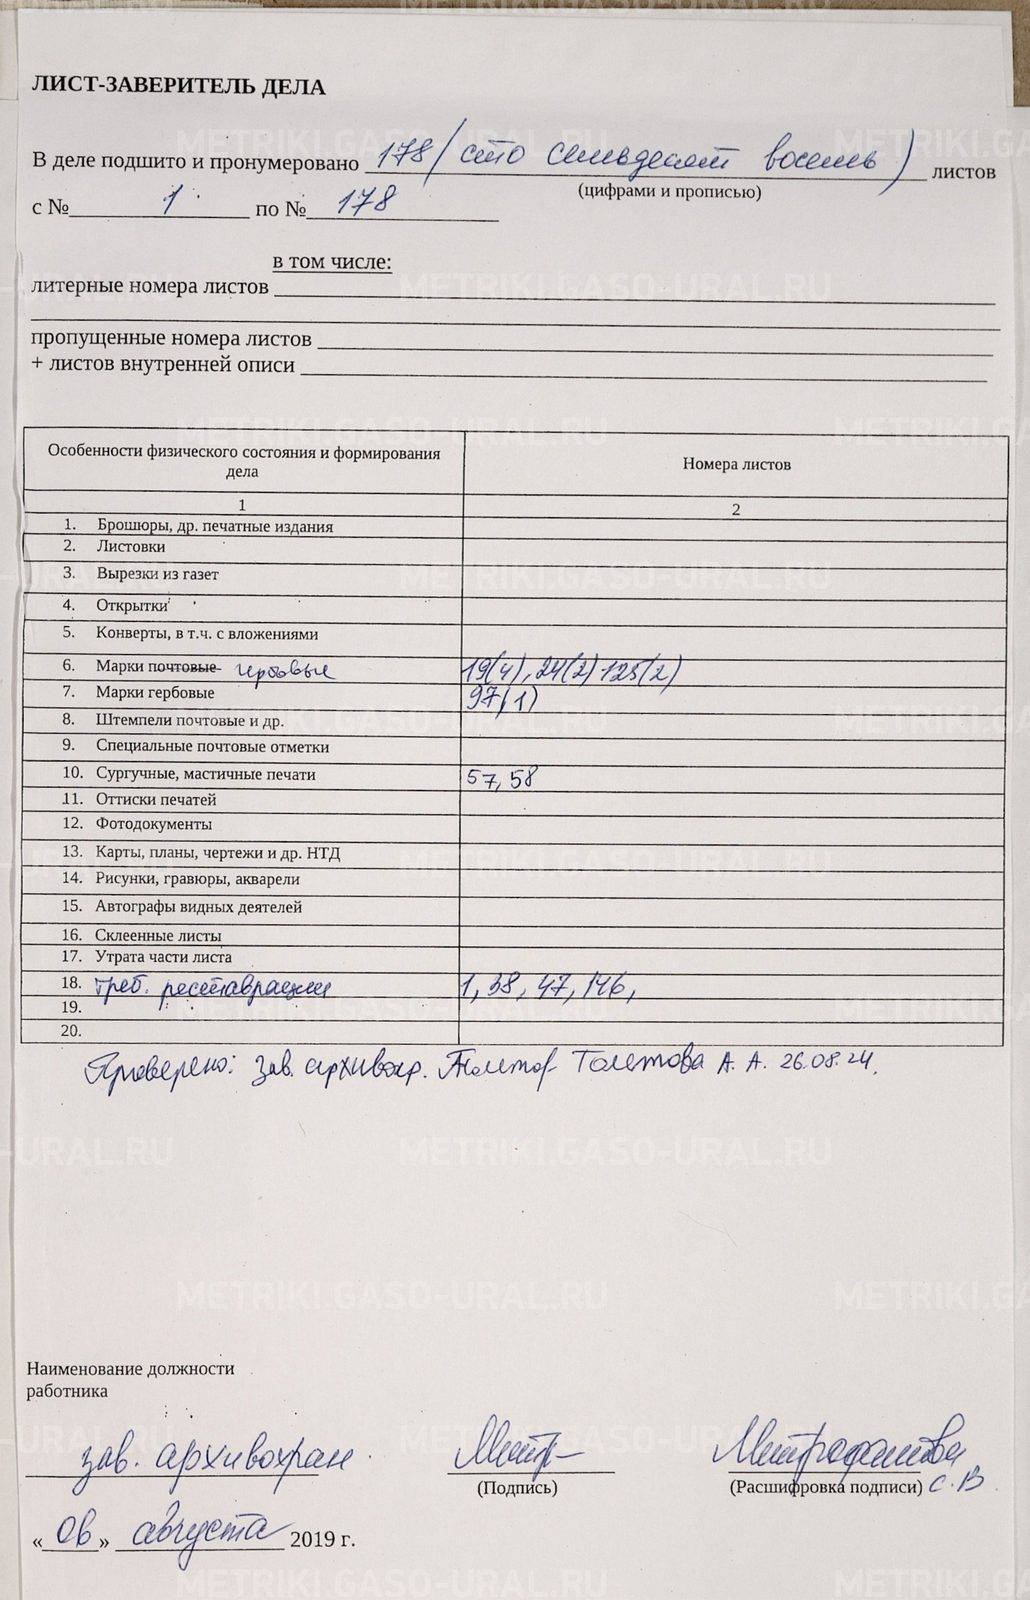 ЛИСТ-ЗАВЕРИТЕЛЬ ДЕЛА
В деле подшито и пронумеровано 178 (сто семьдесят восемь) листов
(цифрами и прописью)
с № 1 по № 178
в том числе:
литерные номера листов
пропущенные номера листов
+ листов внутренней описи
Особенности физического состояния и формирования дела Номера листов
1 2
1. Брошюры, др. печатные издания
2. Листовки
3. Вырезки из газет
4. Открытки
5. Конверты, в т.ч. с вложениями
6. Марки почтовые гербовые 19(4), 24(2) 125(2)
7. Марки гербовые 97(1)
8. Штемпели почтовые и др.
9. Специальные почтовые отметки
10. Сургучные, мастичные печати 57, 58
11. Оттиски печатей
12. Фотодокументы
13. Карты, планы, чертежи и др. НТД
14. Рисунки, гравюры, акварели
15. Автографы видных деятелей
16. Склеенные листы
17. Утрата части листа
18. Треб. реставрации 1, 38, 47, 146,
19.
20.
Проверено: Зав. архивохр. Толстова А. А. 26.08.24.
Наименование должности
работника
зав. архивохран. Митр Митрофанова
(Подпись) (Расшифровка подписи) С.В.
«06» августа 2019 г.
METRIKI.GASO-URAL.RU